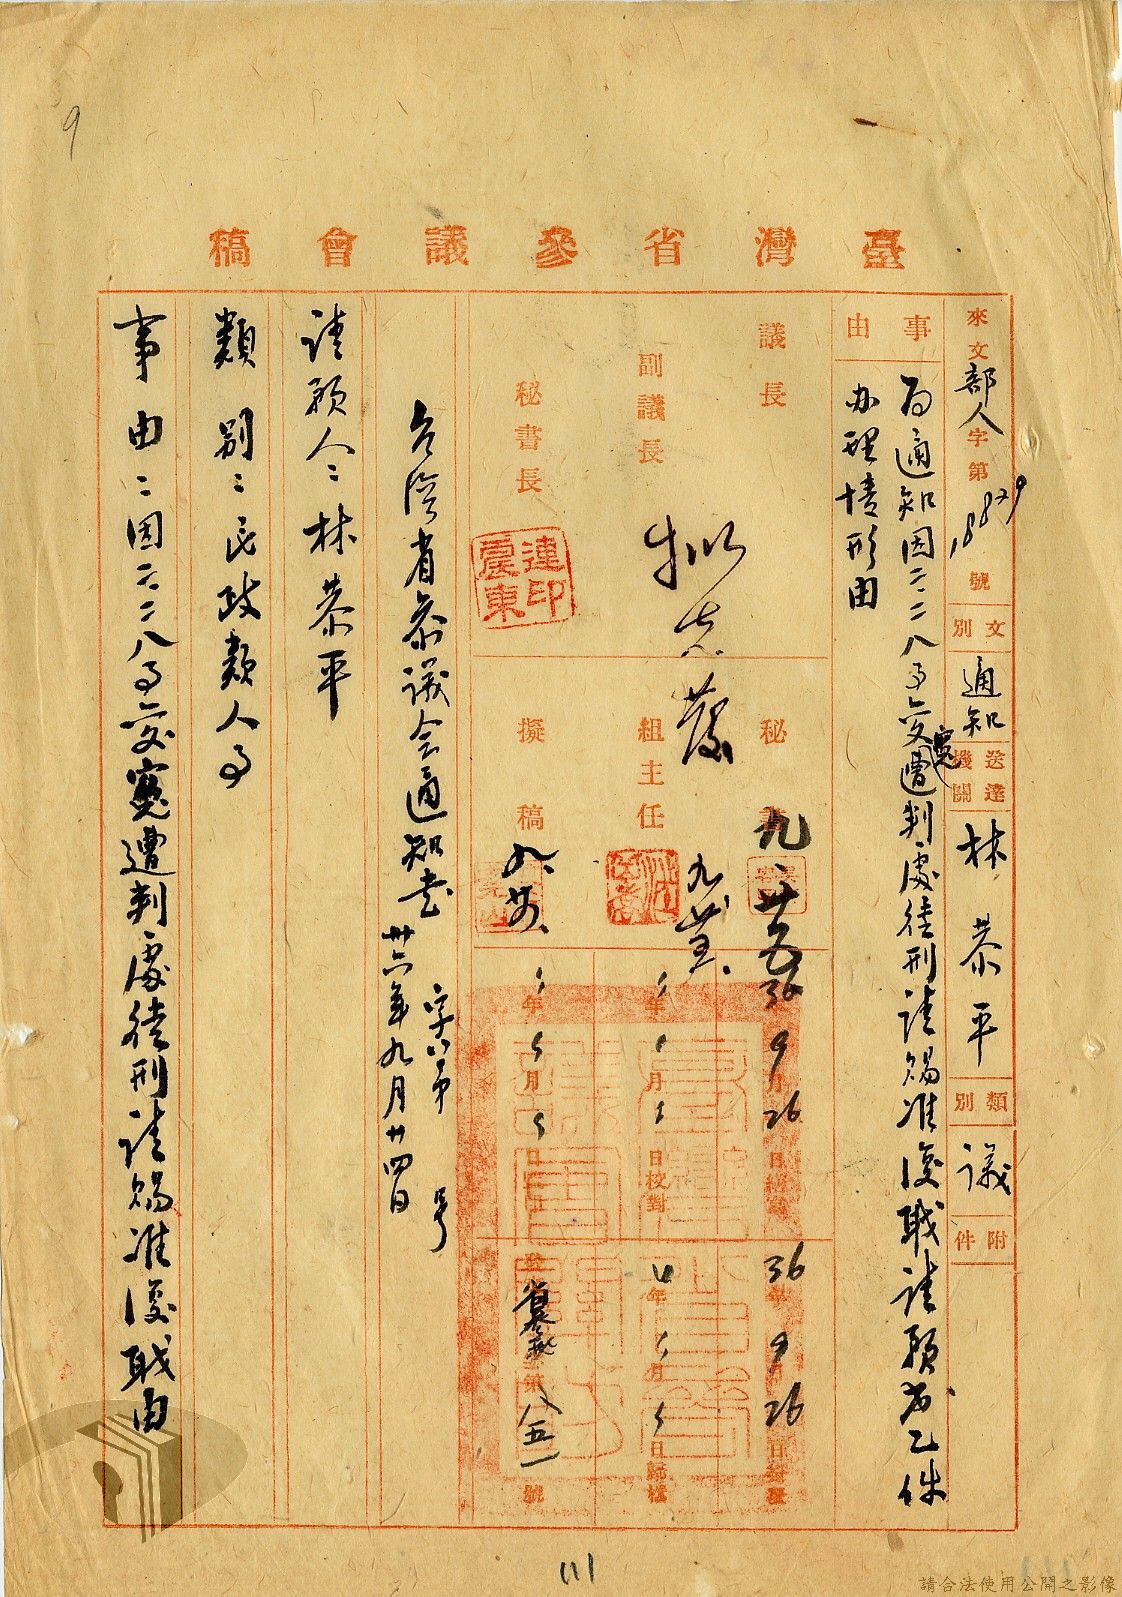 9
臺灣省參議會稿
來文部人字第18829號
文別 通知
送達機關 林恭平
類別 議
附件
事由 為通知因二二八事變遭冤判處徒刑請賜准復職請願書乙件
办理情形由
議長
副議長
秘書長
連震東印
擬
秘書 九、廿五
組主任 九、廿五
擬稿 九、廿四
36年9月26日繕寫
年 月 日校對
年 月 日
36年9月26日封發
年 月 日歸檔
第八五一號
台灣省參議会通知書
字第 号
卅六年九月廿四日
請願人：林恭平
類別：民政類人事
事由：因二二八事變冤遭判處徒刑請賜准復職由
111
請合法使用公開之影像